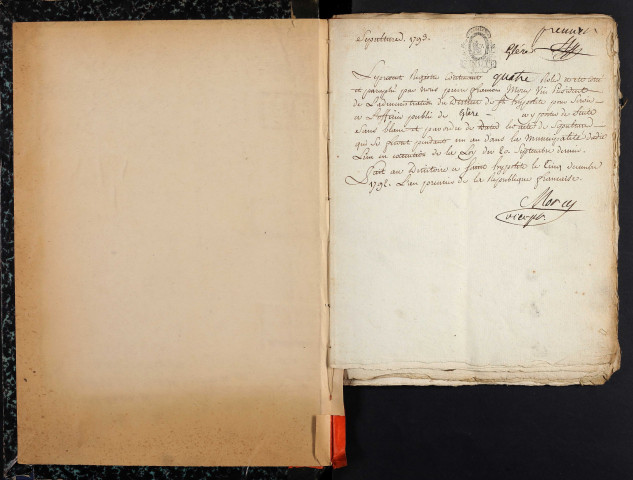 premier
Sepultures. 1793.
Glère
Le present Registre contenant quatre
et paraphé par nous pierre francois Vice President
De L'administration du District de St hypolite pour Servir
a L'officier public de Glère a y porter de Suite
Sans blanc et par ordre de Dates les actes de Sepultures
qui Se feront pendant un an dans la Municipalité dudit
Lieu en execution de la Loy du 20 Septembre dernier
Fait au Directoire a Saint hypolite le Cinq decembre
1792. L'an premier de la Republique francaise.